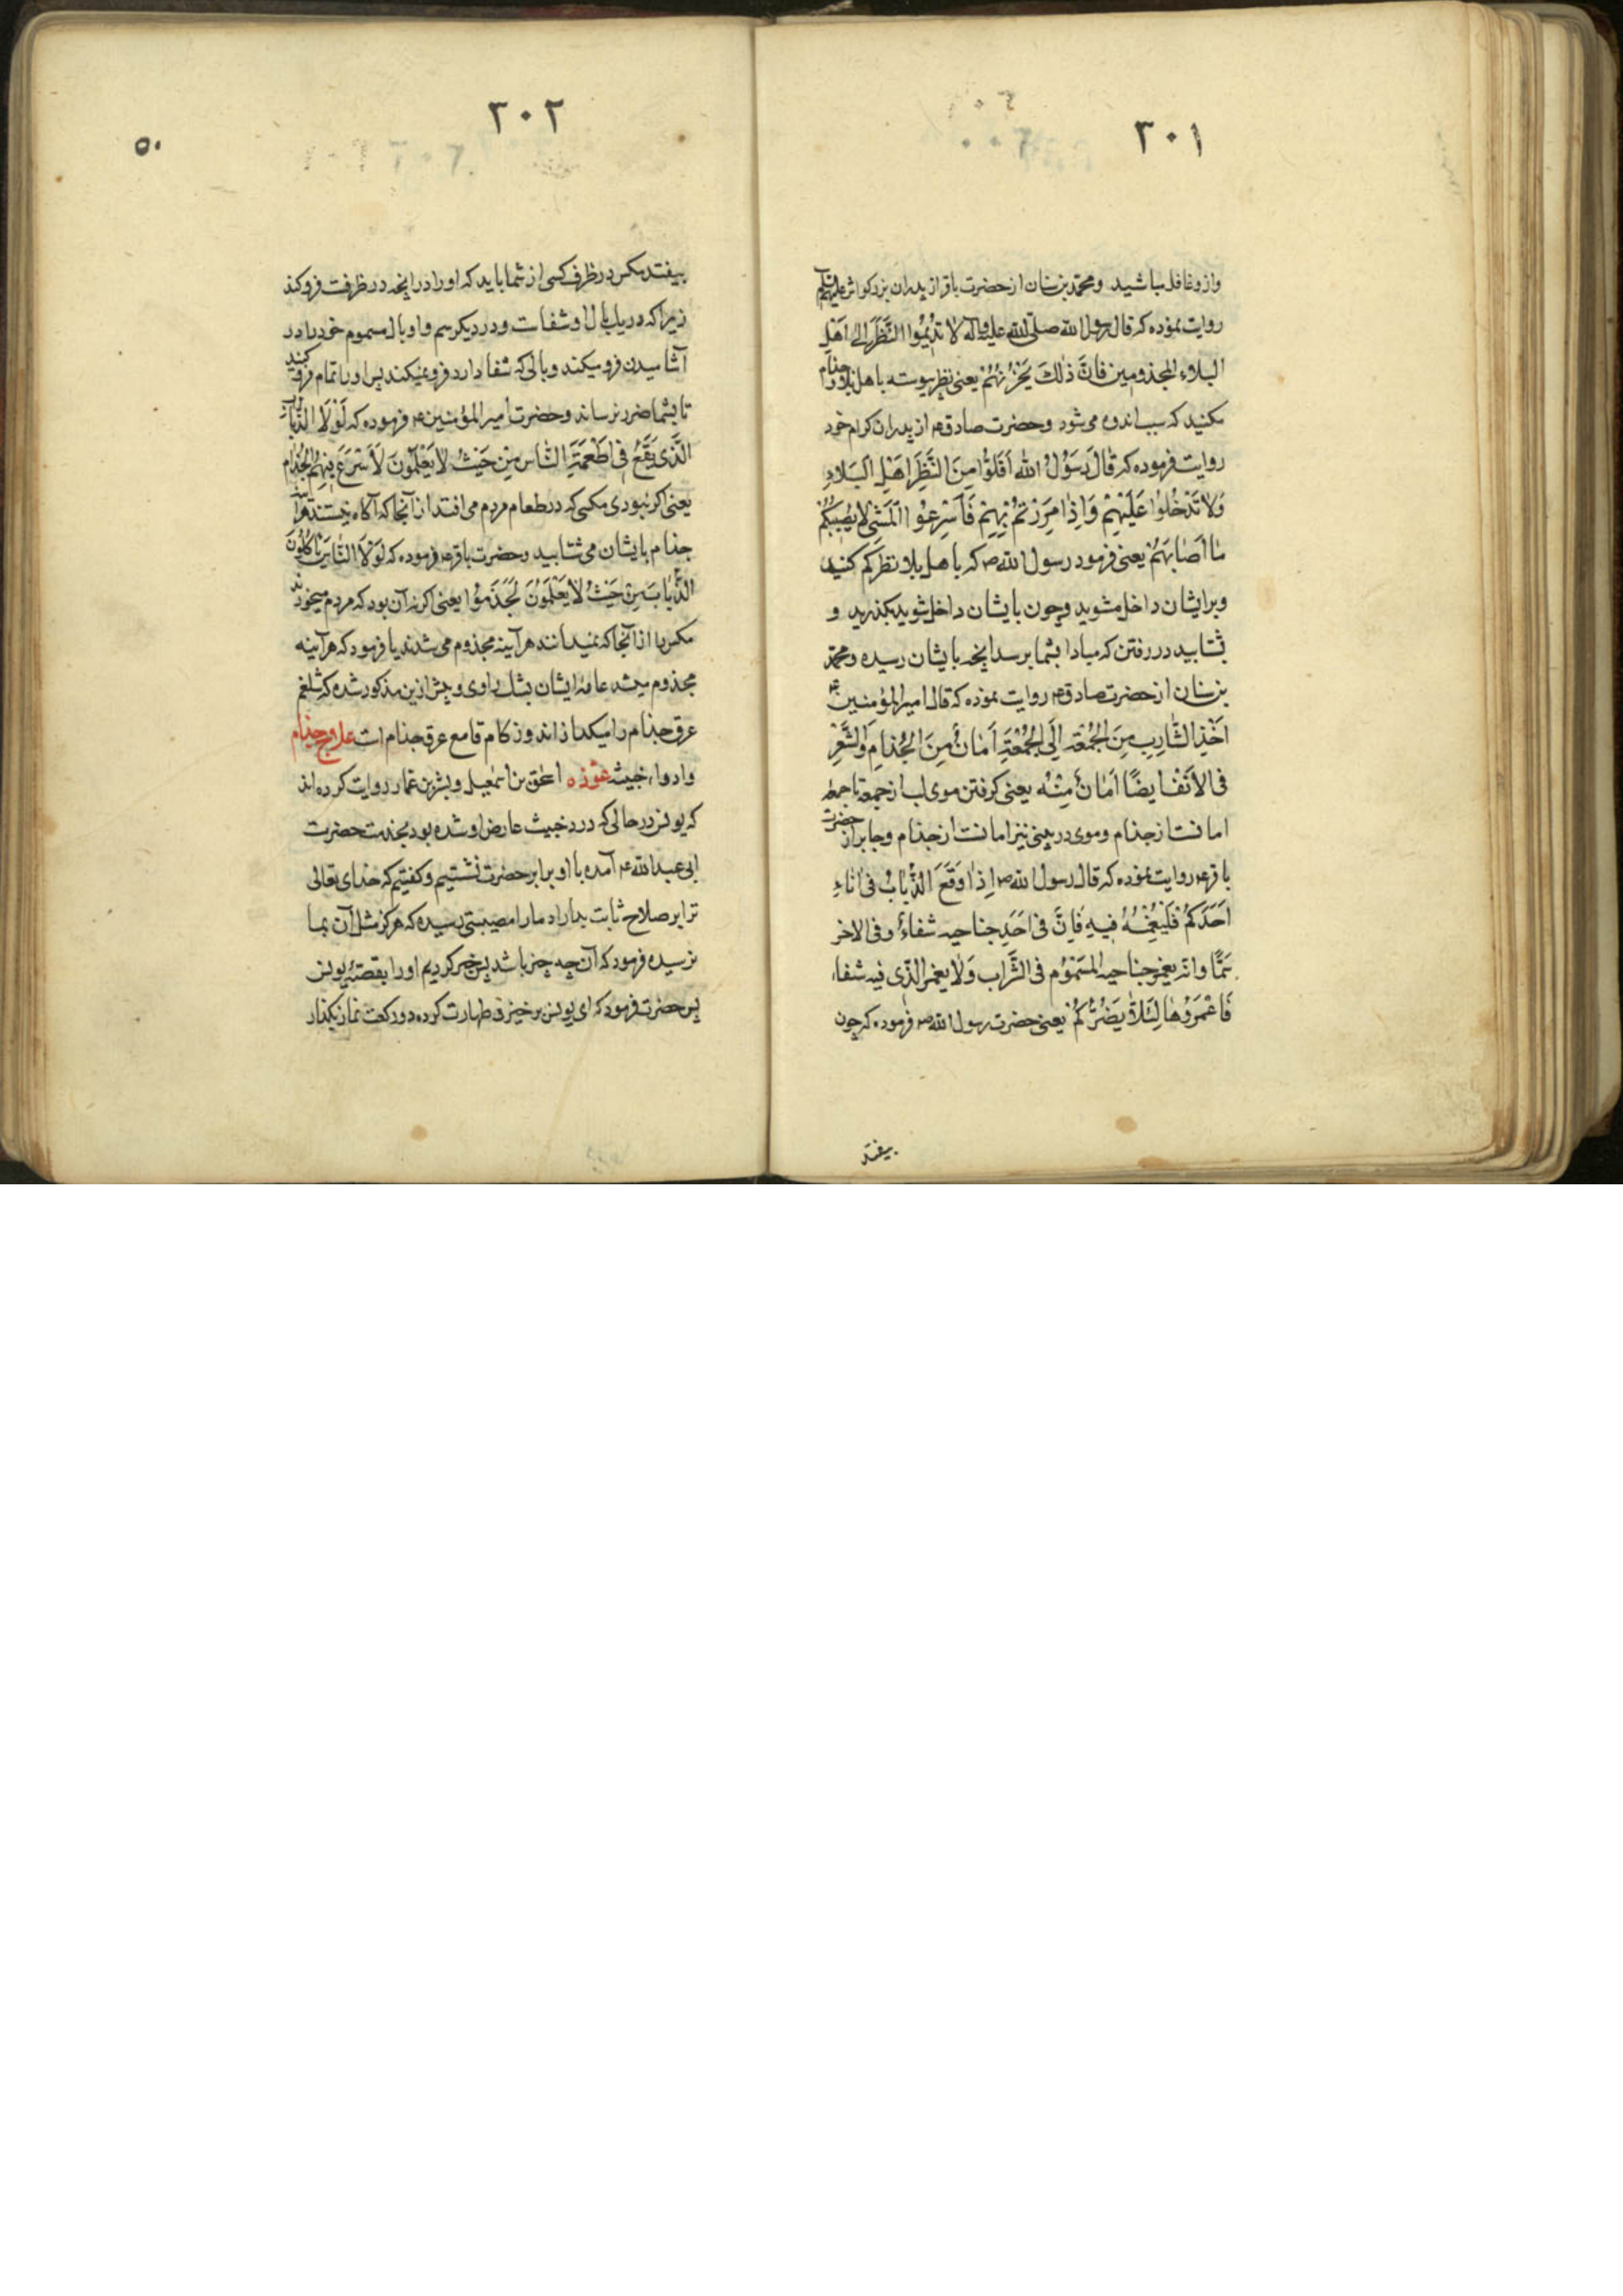 ۳۰۱
وازو غافل مباشید ومحمد بن سنان از حضرت باقر از پدران بزرکوارش علیهم السلم
روایت نموده که قال رسول الله صلی الله علیه وآله لا تُدیمُوا النَّظَرَ اِلی اَهلِ
البلاء والمجذومین فَانَّ ذٰلکَ یَحزُنُهُم یعنی نظر پیوسته باهل بلا و جذام
مکنید که سبب اندوه می شود وحضرت صادق ع از پدران کرام خود
روایت فرموده که قالَ رَسوُلُ الله اَقِلُّوا مِنَ النَّظَرِ اِلی اَهلِ البَلاءِ
وَلا تَدخُلوُا عَلَیهِم وَاِذٰا مَرَرتُم بِهِم فَاَسرِعُوا المَشیَ لا یُصیبُکُم
مٰا اَصٰابَهُم یعنی فرمود رسول الله ص که باهل بلا نظر کم کنید
وبر ایشان داخل مشوید وچون بایشان داخل شوید بکذرید و
بشتابید در رفتن که مبادا بشما برسد انچه بایشان رسیده ومحمد
بن سنان از حضرت صادق ع روایت نموده که قال امیرالمؤمنین ع
اَخذُ الشّارِبِ مِنَ الجُمُعَةِ اِلَی الجُمُعَةِ اَمٰانٌ مِنَ الجُذامِ وَالشَّعرِ
فی الاَنفِ ایضًا اَمٰانٌ مِنهُ یعنی کرفتن موی لب از جمعه تا جمعه
امانست از جذام وموی در بینی نیز امانست از جذام وجابر از حضرت
باقر ع روایت نموده که قال رسول الله ص اِذٰا وَقَعَ الذُّبابُ فی اِناءِ
اَحَدِکُم فَلیَغمِسهُ فیهِ فَاِنَّ فی اَحَدِ جناحیه شفاءٌ وفی الاخر
سَمًّا وانّه یغمز جناحیه المَسمُوُم فی الشَّراب وَلا یغمز الّذی فیه شفاء
فَاغمِزُوهٰا لِئَلاّ یَضُرَّکُم یعنی حضرت رسول الله ص فرموده که چون
بیفتد
۳۰۲
۵۰
بیفتد مکس در ظرف کسی از شما باید که اورا در انچه در ظرفت فرو کند
زیرا که در یک بال او شفاست ودر دیکر سم واو بال مسموم خود را در
آشامیدن فرو میکند وبالی که شفا دارد فرو نمیکند پس اورا تمام فرو کنید
تا بشما ضرر نرساند وحضرت امیرالمؤمنین ع فرموده که لَولا الذُّبابُ
الَّذی یَقَعُ فی اَطعِمَةِ النّاس مِن حَیثُ لا یَعلَمُونَ لَاَسرَعَ بِهِمُ الجُذام
یعنی اکر نبودی مکسی که در طعام مردم می افتد از آنجا که آکاه نیستند هرآینه
جذام بایشان می شتابید وحضرت باقر ع فرموده که لَولا انَّ النّاسَ یَاکُلُونَ
الذُّبٰابَ مِن حَیثُ لا یَعلَمُونَ لَجُذِمُوا یعنی اکر نه آن بود که مردم میخورند
مکس را از آنجا که نمیدانند هرآینه مجذوم می شدند یا فرمود که هرآینه
مجذوم میشد عامهٔ ایشان بشک راوی وپیش ازین مذکور شده که شلغم
عرق جذام را میکدازاند وزکام قامع عرق جذام است علاج جذام
وادواء خبیثه عوذه اسحق بن اسمعیل وبشر بن عمار روایت کرده اند
که یونس در حالی که درد خبیث عارض او شده بود بخدمت حضرت
ابی عبدالله ع آمده با او برابر حضرت نشستیم وکفتیم که خدای تعالی
ترا بر صلاح ثابت بداراد مارا مصیبتی رسیده که هرکز مثل آن بما
نرسیده فرمود که آن چه چیز باشد پس خبر کردیم اورا بقصّهٔ یونس
پس حضرت فرمود که ای یونس برخیز وطهارت کرده دو رکعت نماز بکذار